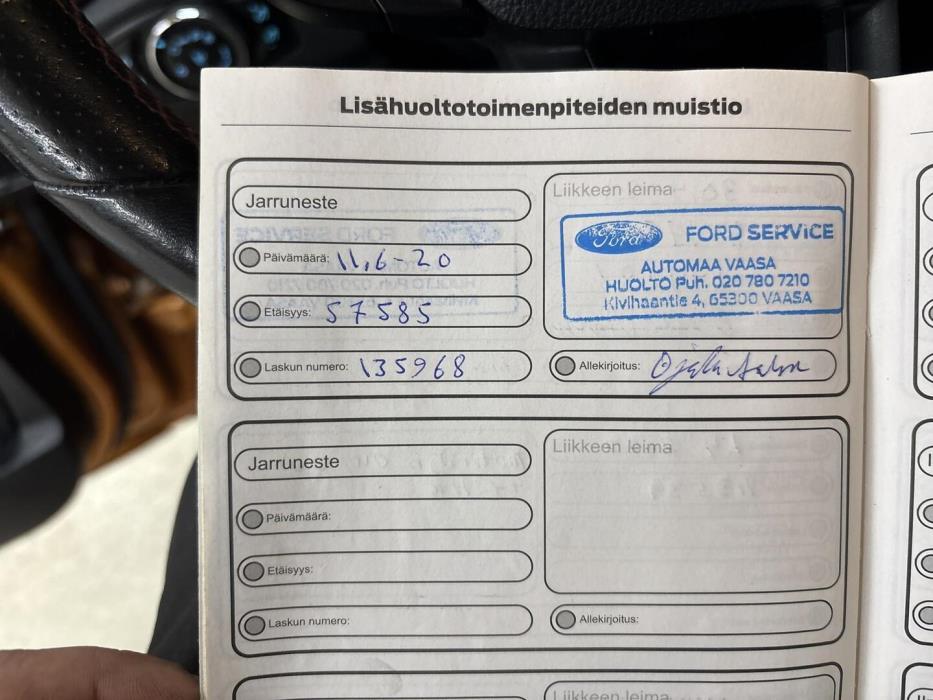 Lisähuoltotoimenpiteiden muistio
Jarruneste
Päivämäärä: 11,6-20
Etäisyys: 57585
Laskun numero: 135968
Liikkeen leima
Ford FORD SERVICE
AUTOMAA VAASA
HUOLTO Puh. 020 780 7210
Kivihaantie 4, 65300 VAASA
Allekirjoitus:
Jarruneste
Päivämäärä:
Etäisyys:
Laskun numero:
Liikkeen leima
Allekirjoitus:
Liikkeen leima